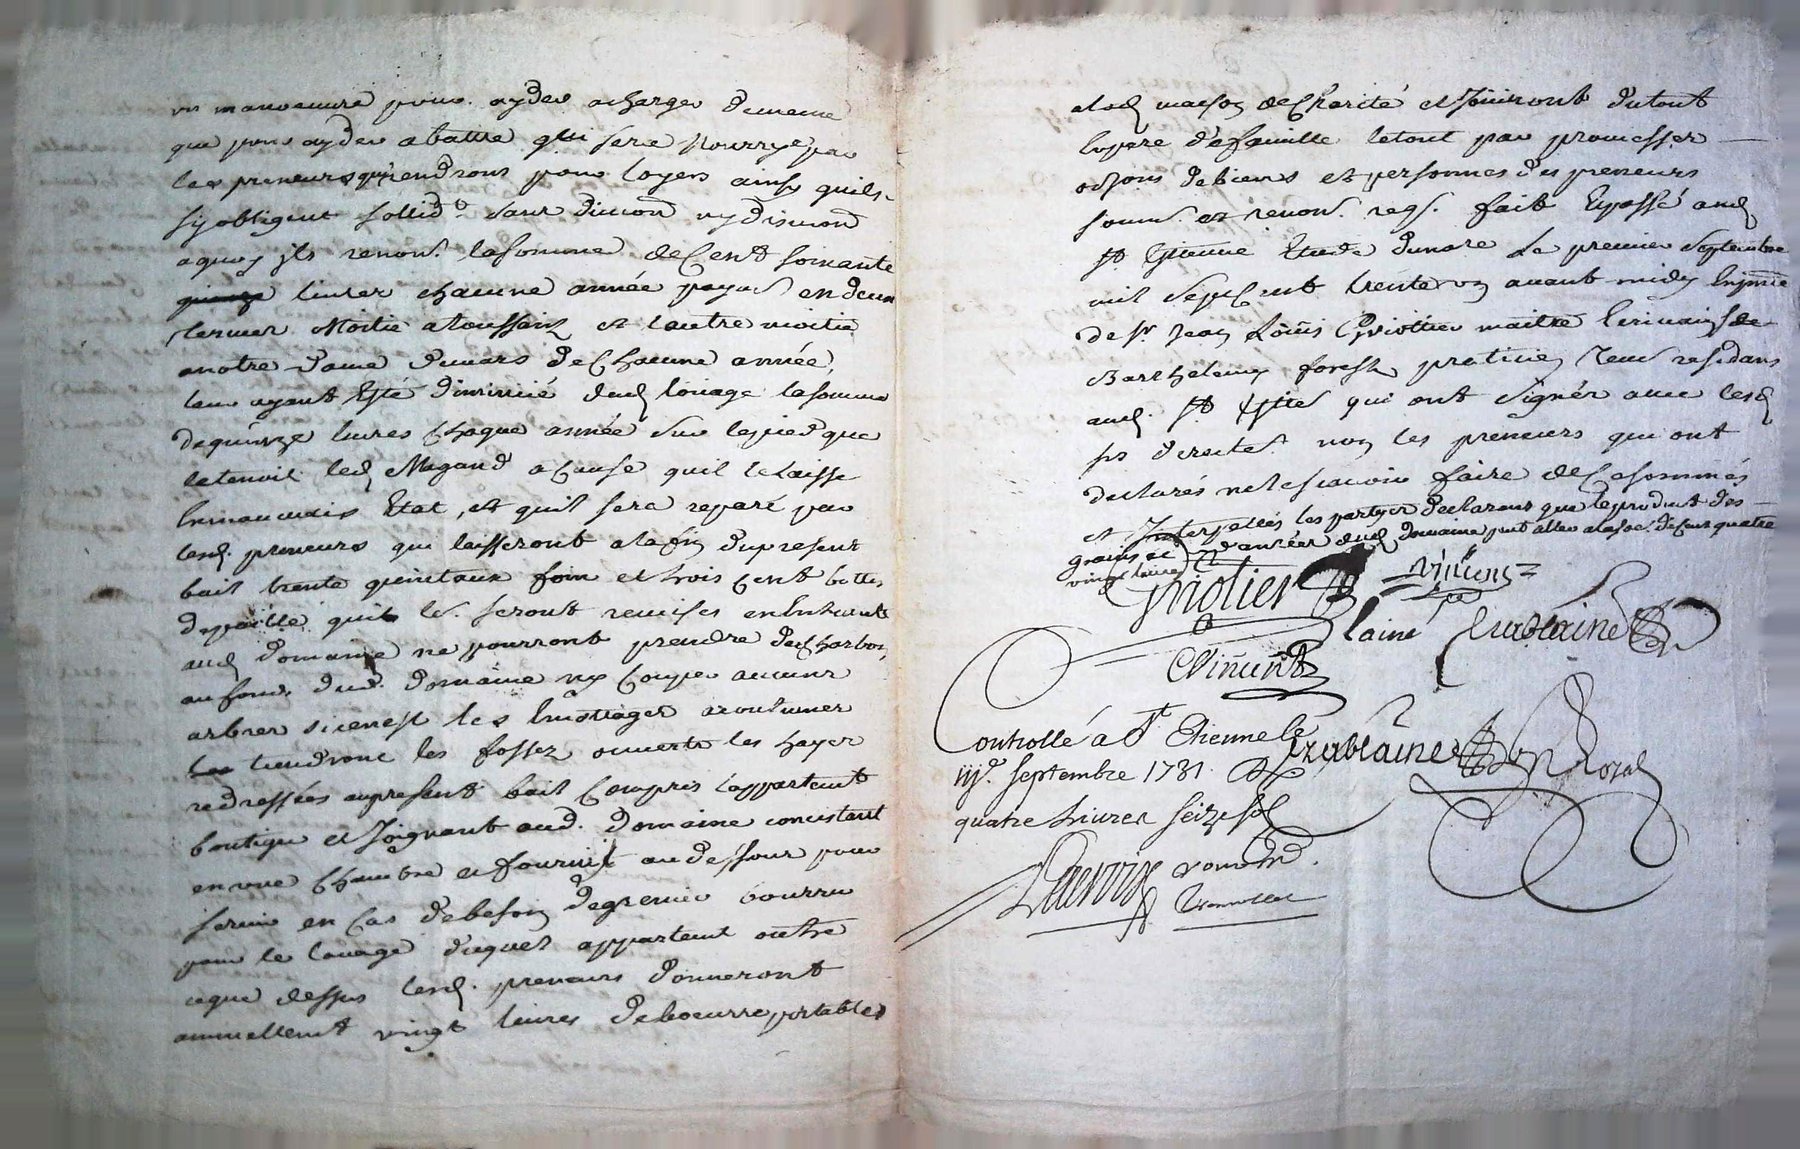 un manoeuvre pour ayder a charger de meme
que pour ayder a battre qui sera Nourry par
les preneurs qui rendront pour loyers ainsy quils
sy obligent sollid. sans division ny discution
a quoy ils renon. la somme de Cent soixante
livres chacune année payab. en deux
termes Moitié a toussaint et l'autre moitié
a notre dame de mars de Chacune année,
leur ayant Esté diminué dud louage la somme
de quinze livres chaque année sur le pied que
le tenoit led Magand a Cause quil le laisse
En mauvais Etat, et quil sera reparé par
lesd. preneurs qui laisseront a la fin du present
bail trente quintaux foin et trois Cent bottes
de paille quil les. seront remises en Entrant
aud domaine ne pourront prendre du Charbon
au fond dud. domaine ny Couper aucuns
arbres si ce n'est les Emottages accoutumes
tiendront les fossez ouverts les hayes
redressées au present bail Compris l'appartement
boutique et Joignant aud. domaine concistant
en une Chambre et fourniſ au dessous pour
servir en Cas de besoin de grenier
pour le louage duquel appartement outre
ce que dessus lesd. preneurs donneront
annuellement vingt livres de beurre portables
a lad maison de Charité et Jouiront du tout
En pere de famille le tout par promesses
de biens et personnes des preneurs
soum. et renon. reqs. fait Et passé aud
St Etienne Etude du nore Le premier Septembre
mil sept Cent trente un avant midy En presence
de Sr Jean Louis Griottier maitre Ecrivain
Barthelemy forest praticien Temd residans
aud. St Etne qui ont signér avec lesd
srs non les preneurs qui ont
declarés ne le scavoir faire de Ce sommés
et Interpellés les partyes declarans que le produit des
grains et danrées dud domaine peut aller a la so. de cens quatre
vingt livres
Griotier
Vincens
lainé
C Vincent
Controllé a St Etienne le
iiie. Septembre 1731. R
quatre livres seize sols